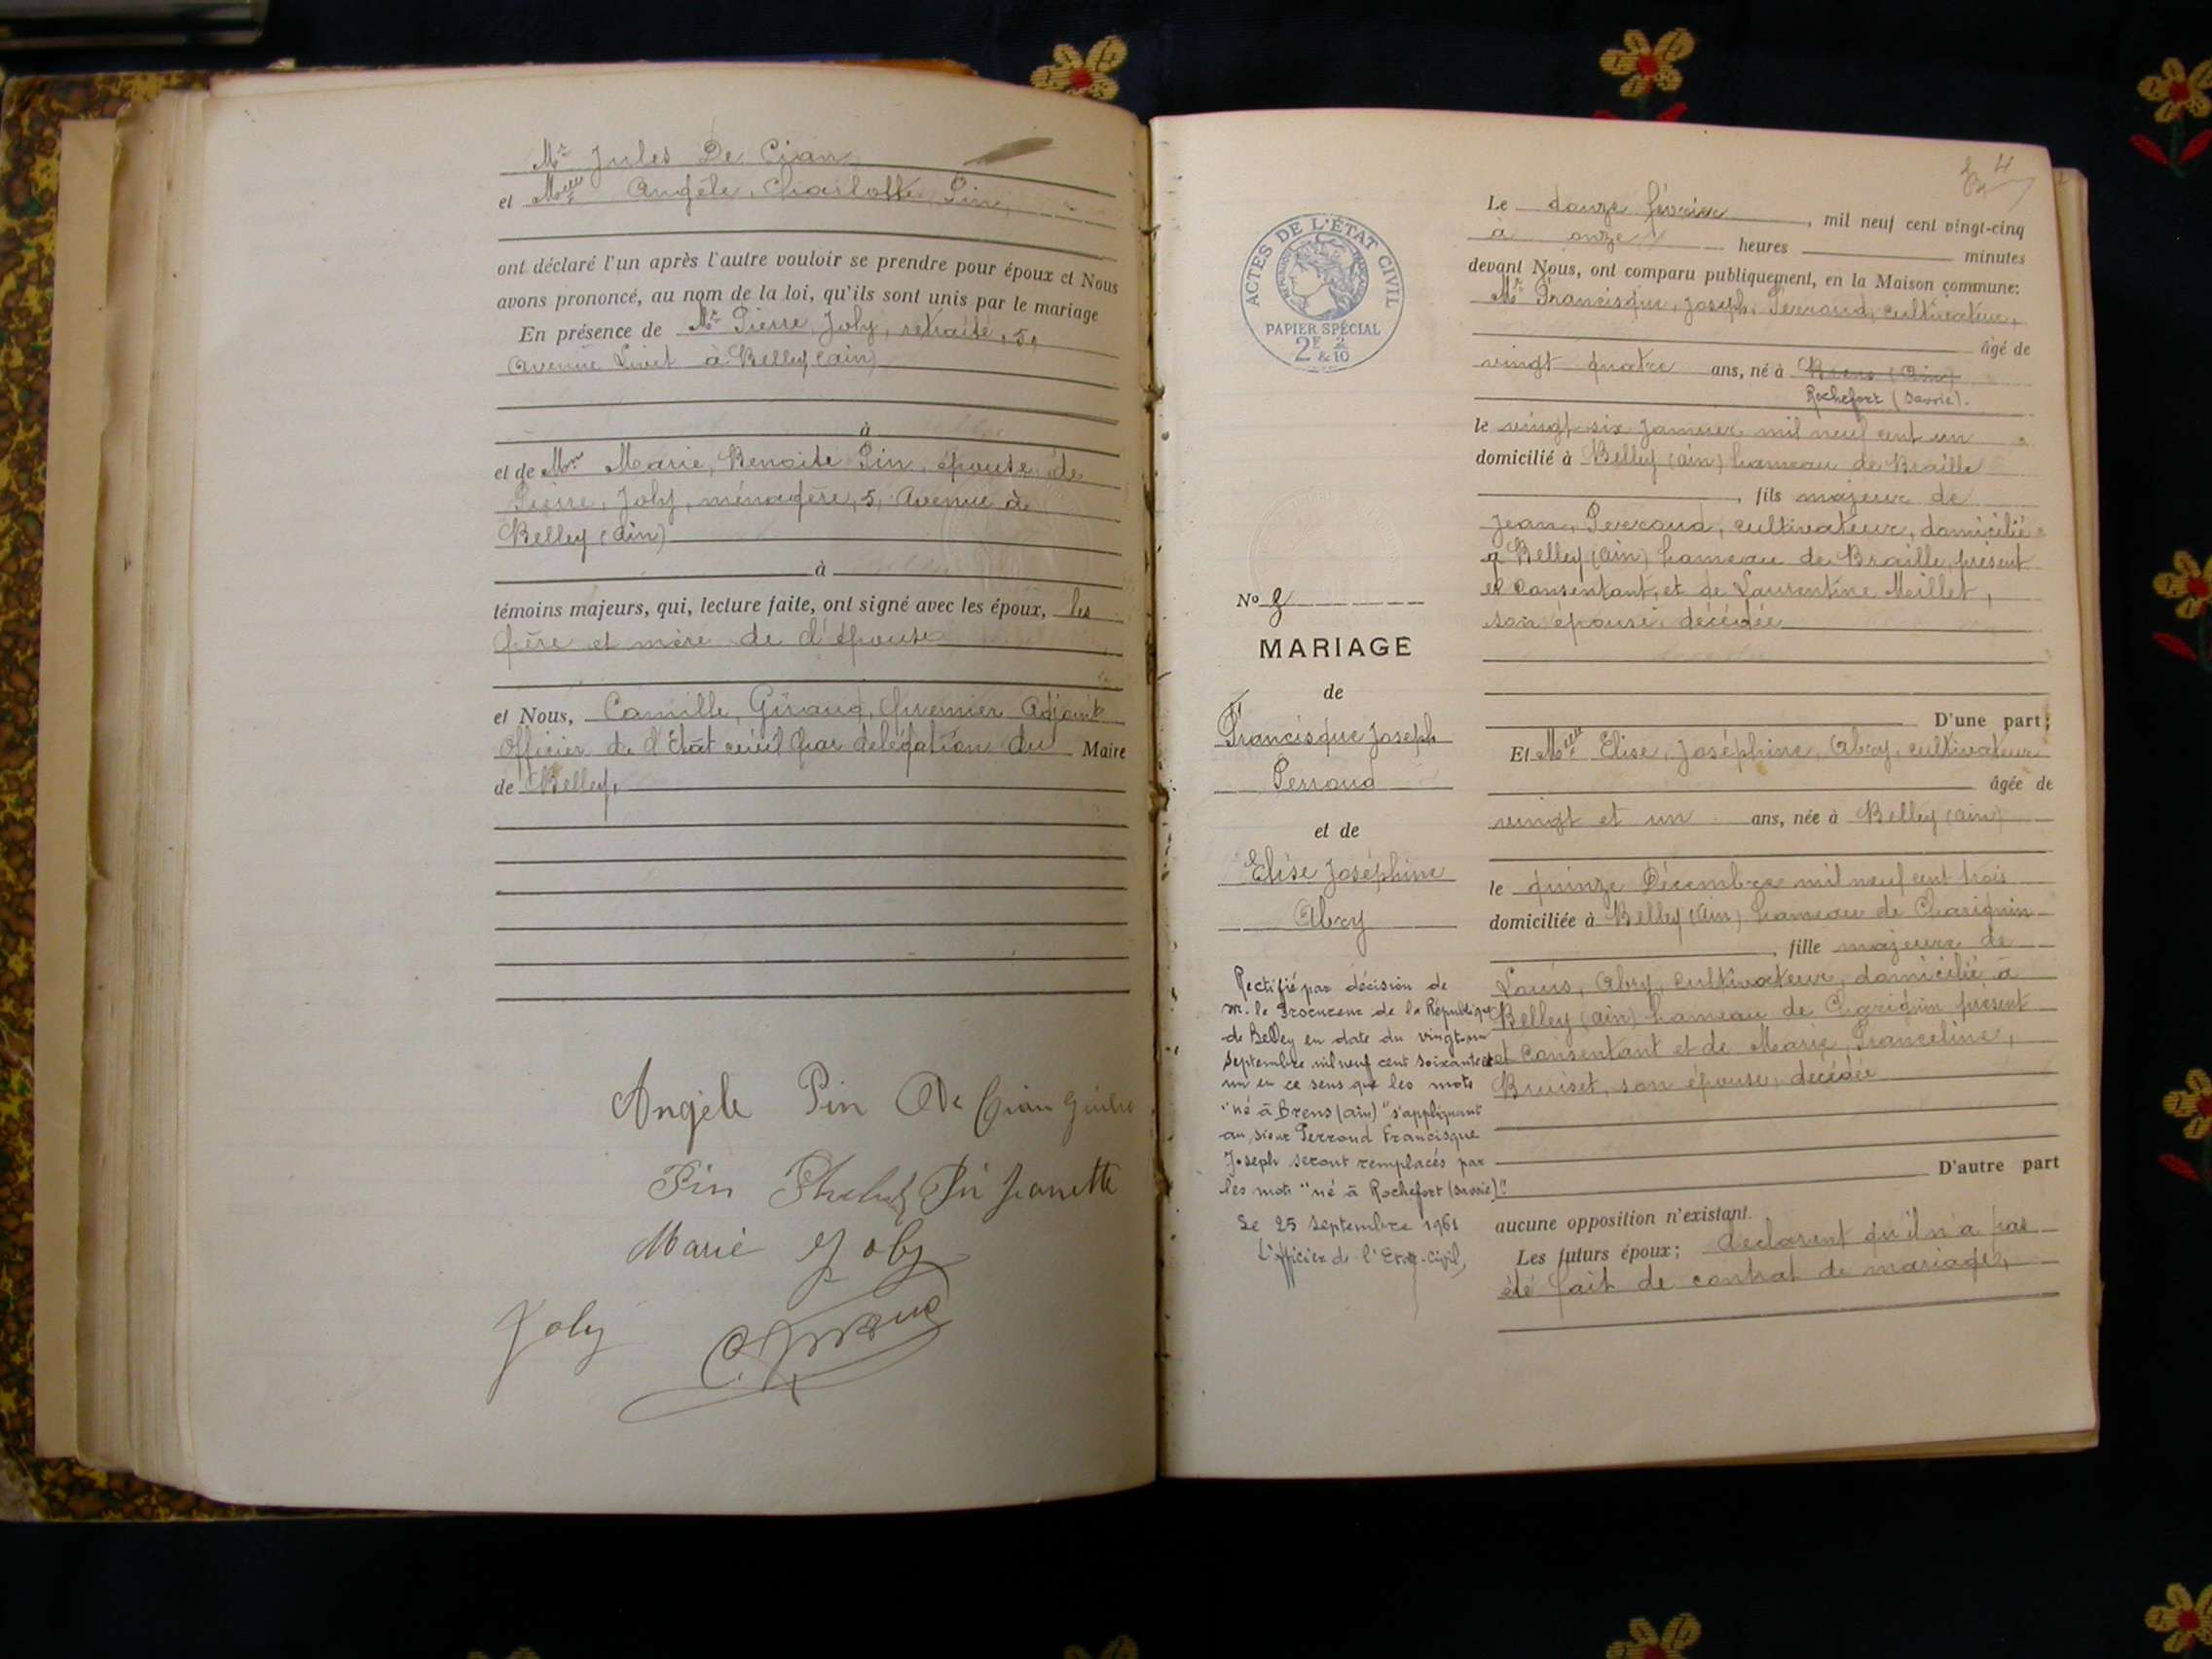 Mr Jules De Cian
et Melle Angèle, Charlotte Pin,
ont déclaré l'un après l'autre vouloir se prendre pour époux et Nous
avons prononcé, au nom de la loi, qu'ils sont unis par le mariage
En présence de Mr Pierre, Joly, retraité, 5,
Avenue à Belley (Ain)
à
et de Mme Marie, Benoite Pin, épouse de
Pierre, Joly, ménagère, 5, Avenue à
Belley (Ain)
à
témoins majeurs, qui, lecture faite, ont signé avec les époux, les
père et mère de l'épouse
et Nous, Camille, Giraud, premier Adjoint
Officier de l'Etat civil par délégation du Maire
de Belley,
Angèle Pin De Cian
Pin Pin Jeanette
Marie Joly
Joly
C. Giraud
4
ACTES DE L'ÉTAT CIVIL
PAPIER SPÉCIAL
2F & 2/10
Le douze février, mil neuf cent vingt-cinq
à onze heures minutes
devant Nous, ont comparu publiquement, en la Maison commune:
Mr Francisque, Joseph, Perroud, cultivateur,
âgé de
vingt quatre ans, né à Brens (Ain)
Rochefort (Savoie).
le vingt-six Janvier mil neuf cent un
domicilié à Belley (Ain) hameau de Braille
, fils majeur de
Jean, Perroud, cultivateur, domicilié
à Belley (Ain) hameau de Braille présent
et consentant, et de Laurentine Meillet,
son épouse, décédée
D'une part;
Et Melle Elise, Joséphine, Abry, cultivateur
âgée de
vingt et un ans, née à Belley (Ain)
le quinze Décembre mil neuf cent trois
domiciliée à Belley (Ain) hameau de Charignin
, fille majeure de
Louis, Abry, cultivateur, domicilié à
Belley (Ain) hameau de Charignin présent
et consentant et de Marie, Franceline,
Bruiset, son épouse, décédée
D'autre part
aucune opposition n'existant.
Les futurs époux; déclarent qu'il n'a pas
été fait de contrat de mariage,
No
MARIAGE
de
Francisque Joseph
Perroud
et de
Elise Joséphine
Abry
Rectifié par décision de
Mr. le Procureur de la République
de Belley en date du vingt-un
septembre mil neuf cent soixante et
un en ce sens que les mots
"né à Brens (Ain)" s'appliquant
au sieur Perroud Francisque
Joseph seront remplacés par
les mots "né à Rochefort (Savoie)".
Le 25 Septembre 1961
L'Officier de l'Etat-Civil,